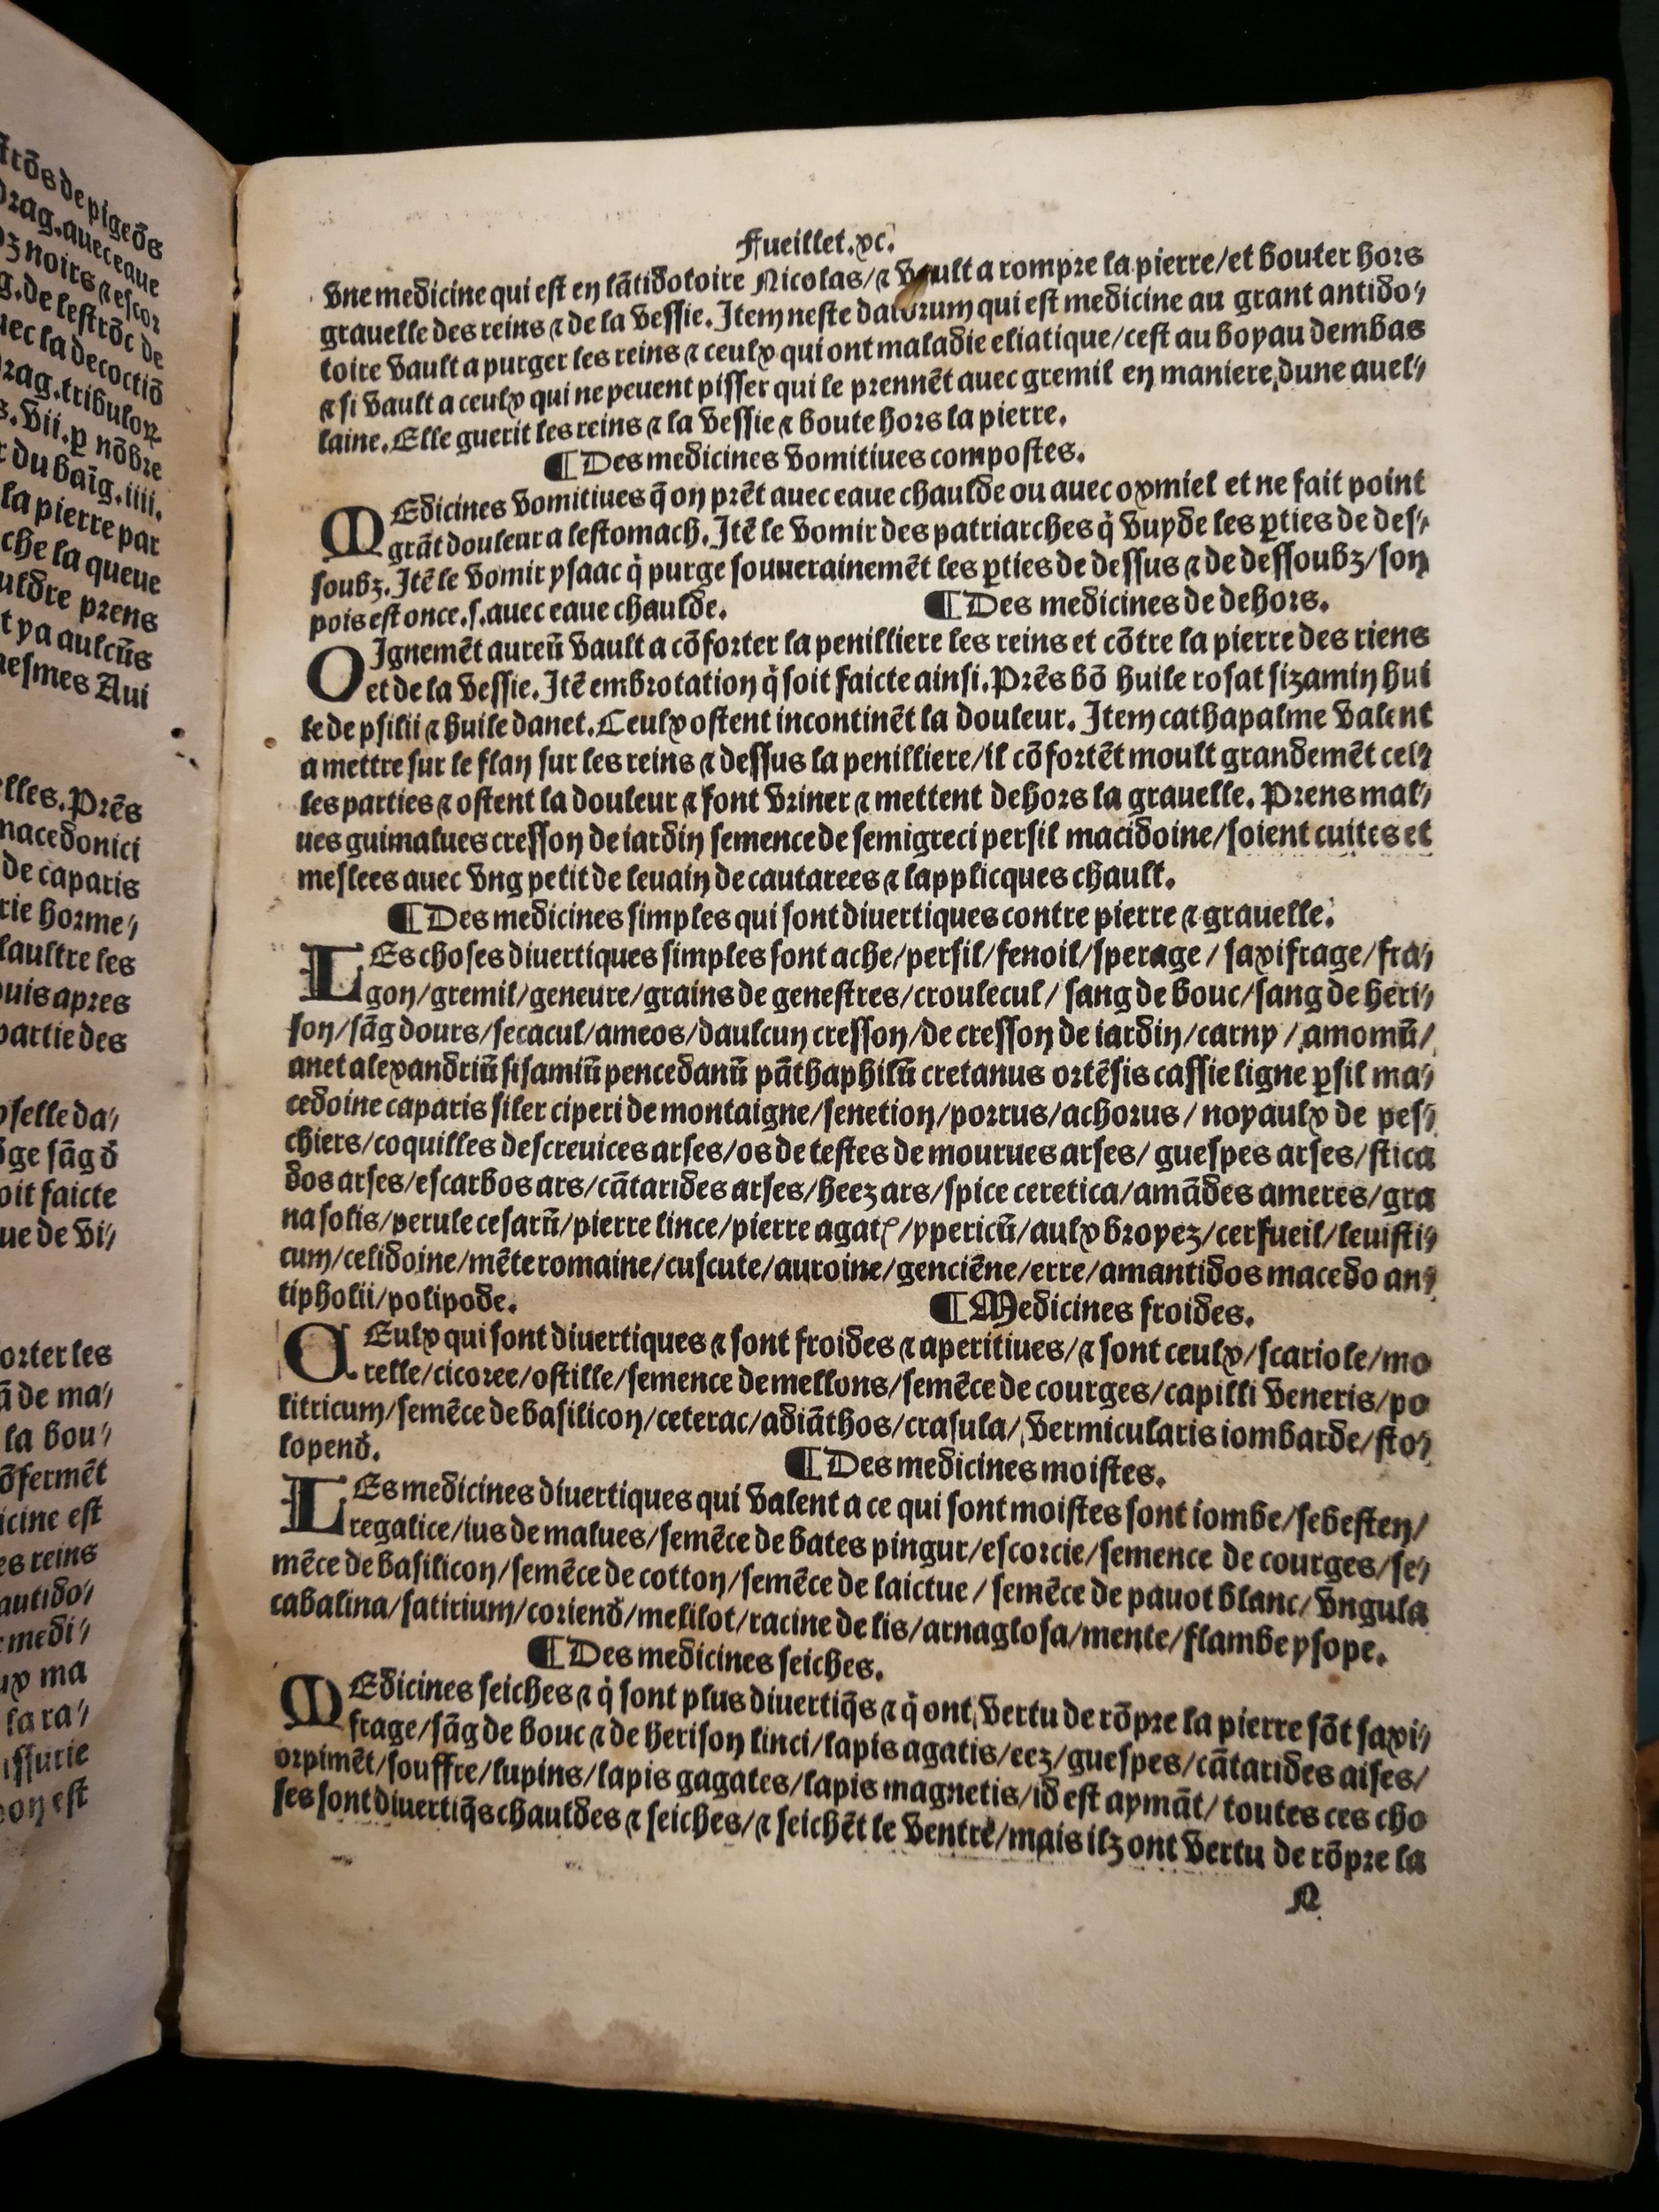 Fueillet.xc.
vne medicine qui est en lãtidotoire Nicolas/⁊ vault a rompre la pierre/et bouter hors
grauelle des reins ⁊ de la vessie. Item neste datorum qui est medicine au grant antido⸗
toire vault a purger les reins ⁊ ceulx qui ont maladie eliatique/cest au boyau dembas
⁊ si vault a ceulx qui ne peuent pisser qui le prennẽt auec gremil en maniere dune auel⸗
laine. Elle guerit les reins ⁊ la vessie ⁊ boute hors la pierre.
¶ Des medicines vomitiues compostes.
MEdicines vomitiues q̃ on prẽt auec eaue chaulde ou auec oxmiel et ne fait point
grãt douleur a lestomach. Itẽ le vomir des patriarches q̇ vuyde les ꝑties de des⸗
soubz. Itẽ le vomir ysaac q̇ purge souuerainemẽt les ꝑties de dessus ⁊ de dessoubz/son
pois est once.ſ.auec eaue chaulde. ¶ Des medicines de dehors.
OIgnemẽt aureũ vault a cõforter la penilliere les reins et cõtre la pierre des riens
et de la vessie. Itẽ embrotation q̇ soit faicte ainsi. Prẽs bõ huile rosat sizamin hui
le de psilii ⁊ huile danet. Ceulx ostent incontinẽt la douleur. Item cathapalme valent
a mettre sur le flan sur les reins ⁊ dessus la penilliere/il cõfortẽt moult grandemẽt cel⸗
les parties ⁊ ostent la douleur ⁊ font vriner ⁊ mettent dehors la grauelle. Prens mal⸗
ues guimalues cresson de iardin semence de semigreci persil macidoine/soient cuites et
meslees auec vng petit de leuain de cautarees ⁊ lapplicques chault.
¶ Des medicines simples qui sont diuertiques contre pierre ⁊ grauelle.
LEs choses diuertiques simples sont ache/persil/fenoil/sperage/saxifrage/fra⸗
gon/gremil/geneure/grains de genestres/croulecul/sang de bouc/sang de heri⸗
son/sãg dours/secacul/ameos/daulcun cresson/de cresson de iardin/carny/amomũ/
anet alexandriũ sisamiũ pencedanũ pãthaphilũ cretanus ortẽsis cassie ligne ꝑsil ma⸗
cedoine caparis siler ciperi de montaigne/senetion/porrus/achorus/noyaulx de pes⸗
chiers/coquilles descreuices arses/os de testes de mourues arses/guespes arses/stica
dos arses/escarbos ars/cãtarides arses/heez ars/spice ceretica/amãdes ameres/gra
na solis/perule cesarũ/pierre lince/pierre agat/ypericũ/aulx broyez/cerfueil/leuisti⸗
cum/celidoine/mẽte romaine/cuscute/auroine/genciẽne/erre/amantidos macedo an⸗
tipholii/polipode. ¶ Medicines froides.
CEulx qui sont diuertiques ⁊ sont froides ⁊ aperitiues/⁊ sont ceulx/scariole/mo
relle/cicoree/ostille/semence de mellons/semẽce de courges/capilli veneris/po
litricum/semẽce de basilicon/ceterac/adiãthos/crasula/vermicularis iombarde/sto⸗
lopend̛. ¶ Des medicines moistes.
LEs medicines diuertiques qui valent a ce qui sont moistes sont iombe/sebesten/
regalice/ius de malues/semẽce de bates pingur/escorcie/semence de courges/se⸗
mẽce de basilicon/semẽce de cotton/semẽce de laictue/semẽce de pauot blanc/vngula
cabalina/satirium/coriend̛/melilot/racine de lis/arnaglosa/mente/flambe ysope.
¶ Des medicines seiches.
MEdicines seiches ⁊ q̇ sont plus diuertiq̃s ⁊ q̇ ont vertu de rõpre la pierre sõt saxi⸗
frage/sãg de bouc ⁊ de herison linci/lapis agatis/eez/guespes/cãtarides aises/
orpimẽt/souffre/lupins/lapis gagates/lapis magnetis/id est aymãt/toutes ces cho
ses sont diuertiq̃s chauldes ⁊ seiches/⁊ seichẽt le ventre/mais ilz ont vertu de rõpre la
N